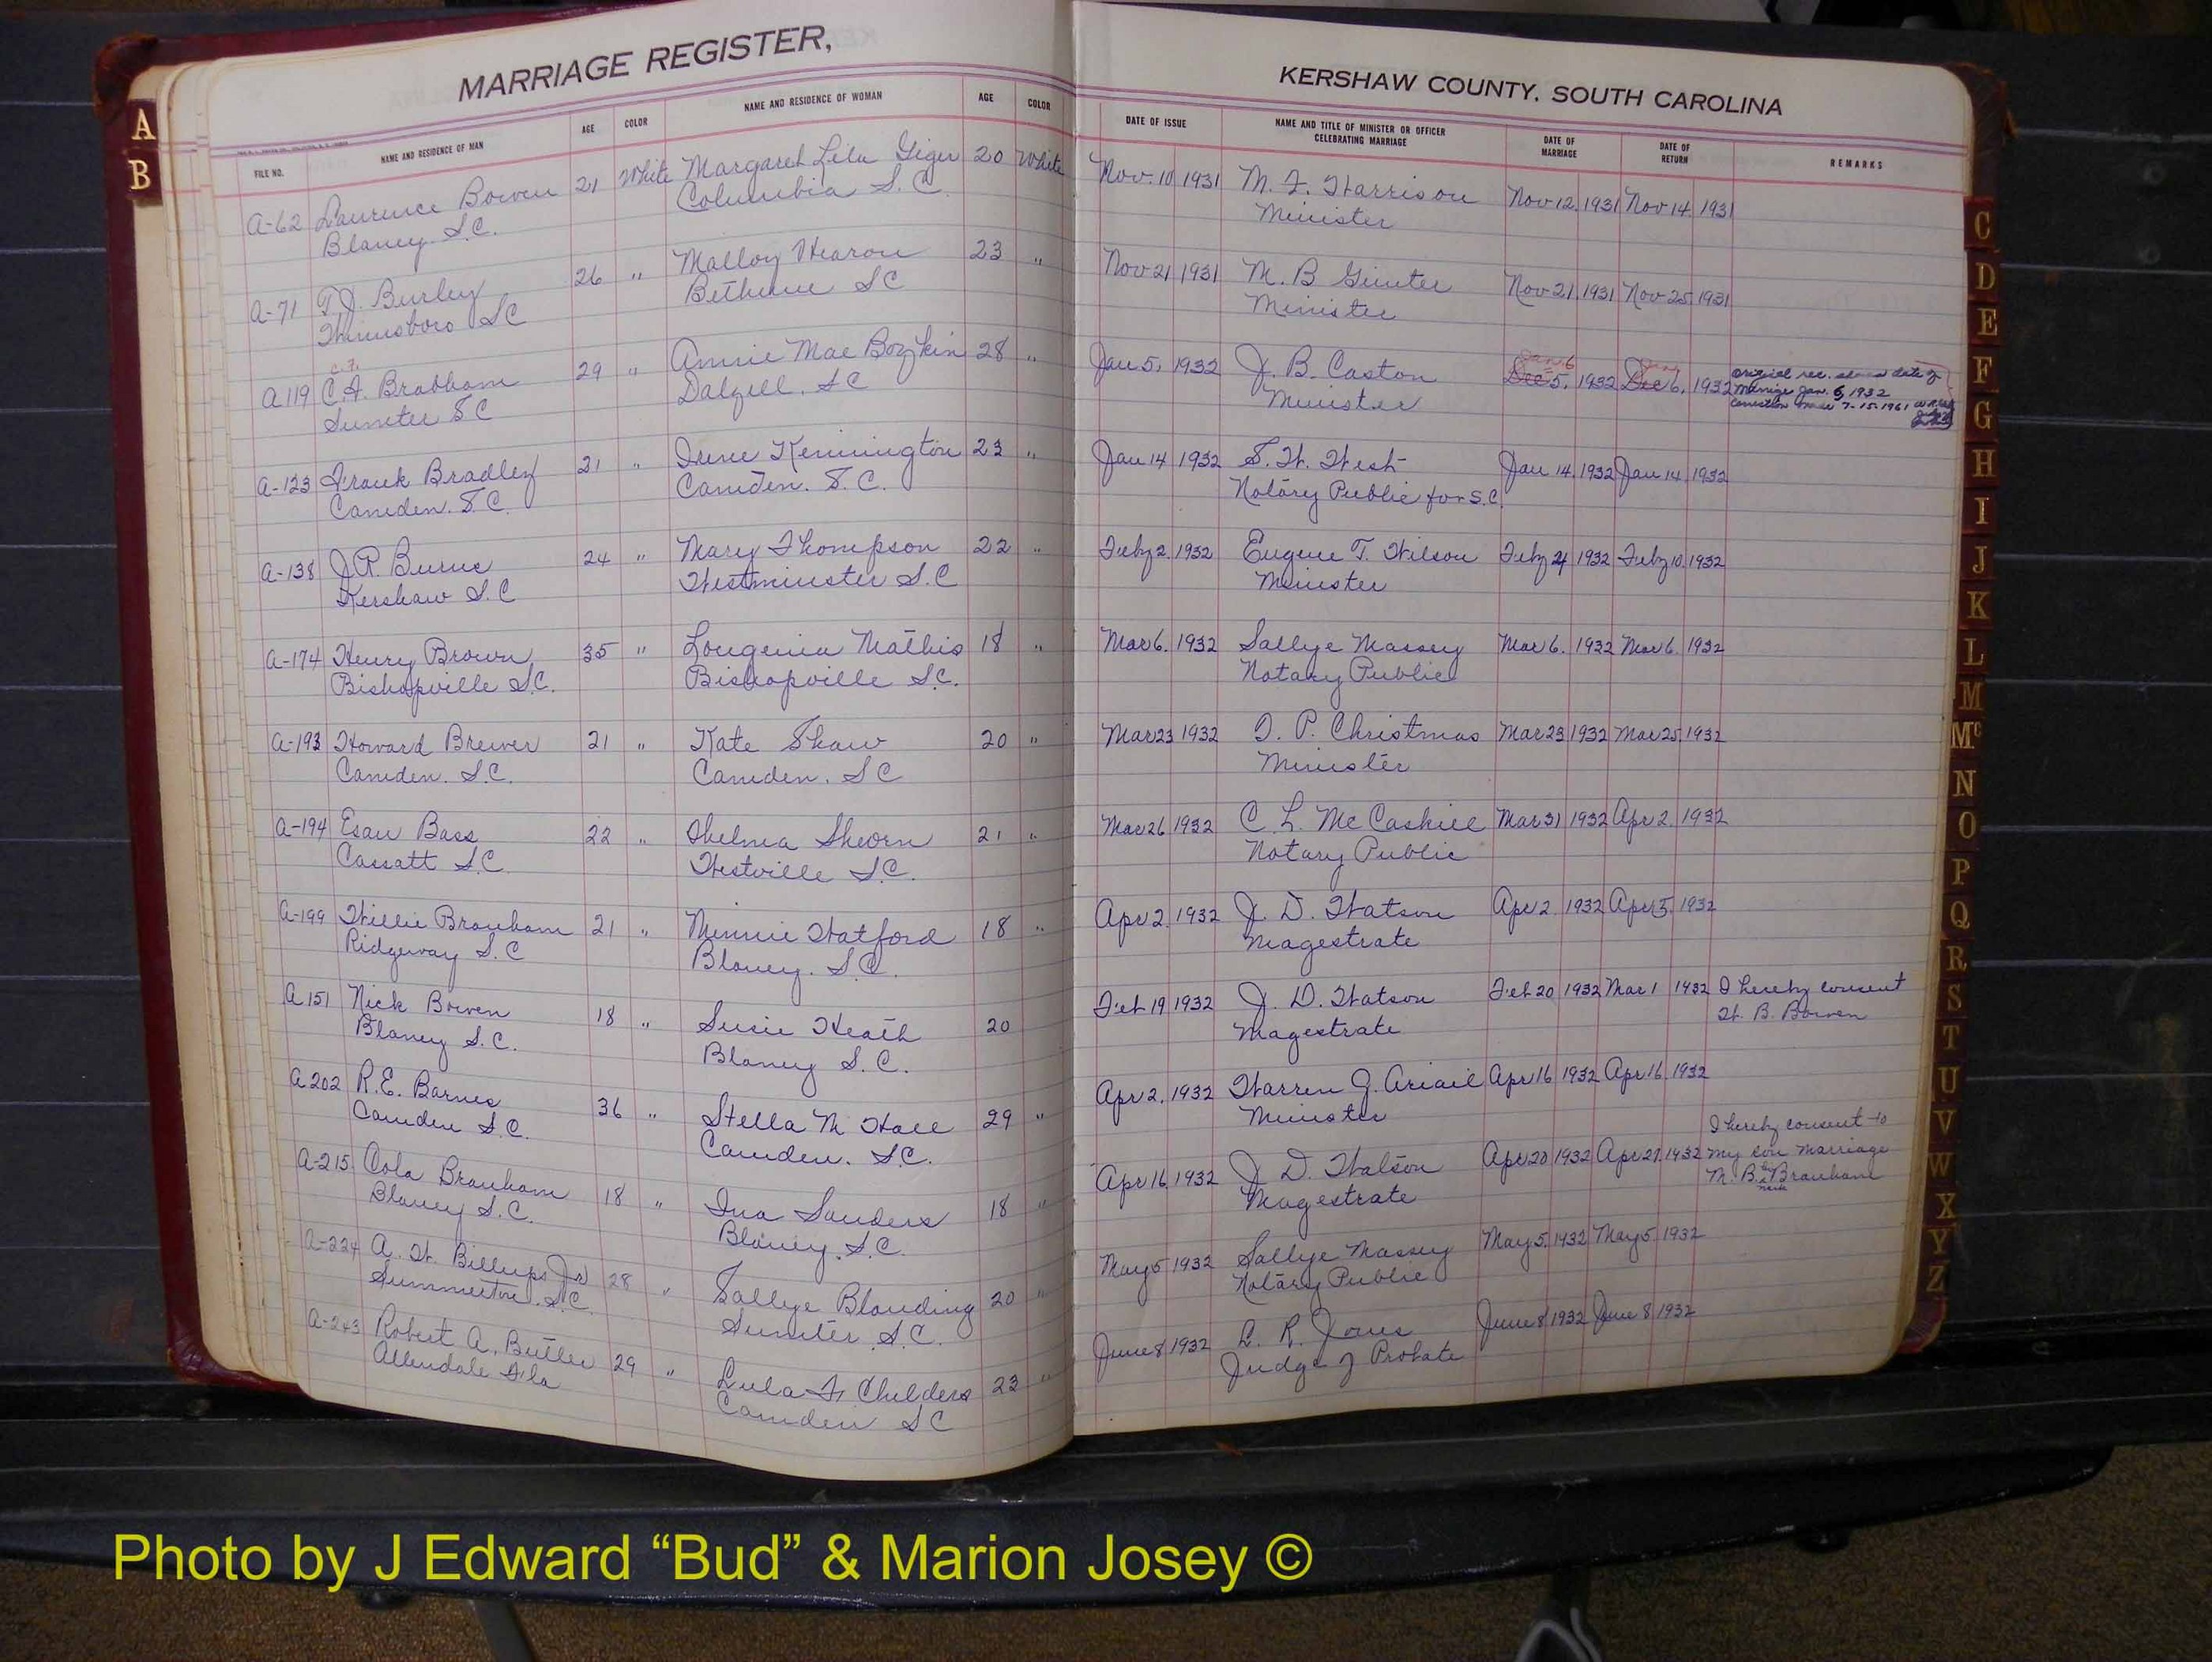 MARRIAGE REGISTER,
KERSHAW COUNTY, SOUTH CAROLINA
FILE NO. NAME AND RESIDENCE OF MAN AGE COLOR NAME AND RESIDENCE OF WOMAN AGE COLOR DATE OF ISSUE NAME AND TITLE OF MINISTER OR OFFICER CELEBRATING MARRIAGE DATE OF MARRIAGE DATE OF RETURN REMARKS
A-62 Laurence Bowen 21 White Margaret Lila Giger 20 White Nov. 10 1931 M. F. Harrison Nov 12, 1931 Nov 14 1931
Blaney S.C. Columbia S.C. Minister
A-71 T.J. Burley 26 " Malloy Hearon 23 " Nov 21 1931 M. B Gunter Nov 21, 1931 Nov 25 1931
Winnsboro SC Bethune SC Minister
A119 C.A. Bradham 29 " Annie Mae Boykin 28 " Jan 5, 1932 J. B. Caston Dec 5, 1932 Dec 6, 1932 original rec. shows date of
Sumter SC Dalzell, SC Minister Marriage Jan. 6, 1932
Correction made 7-15-1961
A-123 Frank Bradley 21 " Irene Kennington 23 " Jan 14 1932 S. W. West Jan 14, 1932 Jan 14, 1932
Camden. S.C. Camden. S.C. Notary Public for S.C.
A-138 J.R. Burns 24 " Mary Thompson 22 " Feby 2, 1932 Eugene T. Wilson Feby 4 1932 Feby 10, 1932
Kershaw S.C Westminster S.C Minister
A-174 Henry Brown 35 " Lougenia Mathis 18 " Mar 6, 1932 Sallye Massey Mar 6, 1932 Mar 6 1932
Bishopville S.C. Bishopville S.C. Notary Public
A-193 Howard Brewer 21 " Kate Shaw 20 " Mar 23 1932 D. P. Christmas Mar 23 1932 Mar 25, 1932
Camden. S.C. Camden. SC Minister
A-194 Esau Bass 22 " Thelma Sheorn 21 " Mar 26 1932 C L. McCaskill Mar 31 1932 Apr 2, 1932
Cassatt S.C Westville S.C. Notary Public
A-199 Willie Branham 21 " Minnie Watford 18 " Apr 2, 1932 J. D. Watson Apr 2 1932 Apr 5, 1932
Ridgeway S.C Blaney. S.C. Magestrate
A 151 Nick Bowen 18 " Susie Heath 20 Feb 19 1932 J. D. Watson Feb 20 1932 Mar 1 1932 I hereby consent
Blaney S.C. Blaney S.C. Magestrate W. B. Bowen
A 202 R.E. Barnes 36 " Stella M Hall 29 " Apr 2, 1932 Warren G. Ariail Apr 16 1932 Apr 16, 1932
Camden S.C. Camden. S.C. Minister
A-215 Cola Branham 18 " Ina Sanders 18 " Apr 16, 1932 J D. Watson Apr 20 1932 Apr 27, 1932 I hereby consent to
my son marriage
Blaney S.C. Blaney. S.C. Magestrate M. B. Branham
A-224 A. W. Billups Jr 28 " Sallye Blanding 20 " May 5 1932 Sallye Massey May 5, 1932 May 5 1932
Summerton. S.C. Sumter, S.C. Notary Public
A-243 Robert A. Butler 29 " Lula F. Childers 23 " June 8 1932 L. R. Jones June 8 1932 June 8 1932
Allendale Fla Camden SC Judge of Probate
A
B
C
D
E
F
G
H
I
J
K
L
M
Mc
N
O
P
Q
R
S
T
U
V
W
X
Y
Z
Photo by J Edward “Bud” & Marion Josey ©